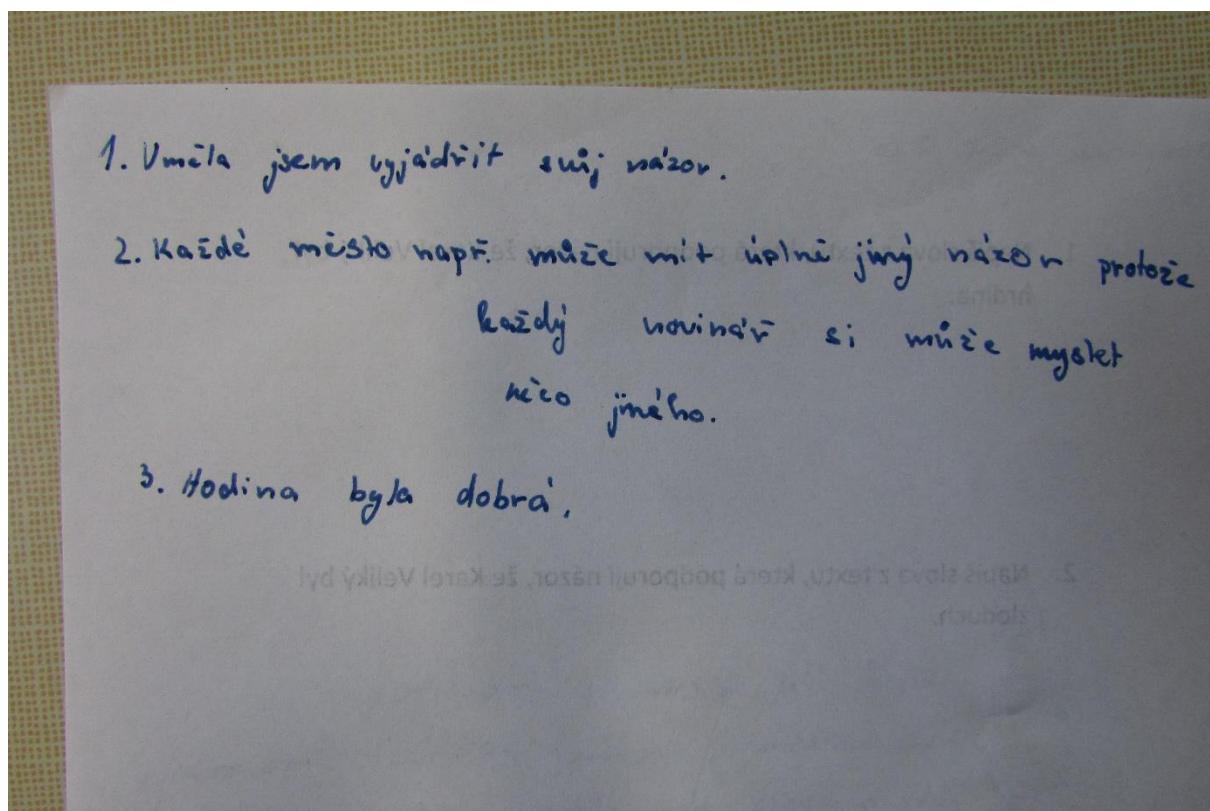 1. Uměla jsem vyjádřit svůj názor.
2. Každé město např. může mít úplně jiný názor protože
každý novinář si může myslet
něco jiného.
3. Hodina byla dobrá.
2. Napiš slova z textu, která podporují názor, že Karel Veliký byl
zloduch.